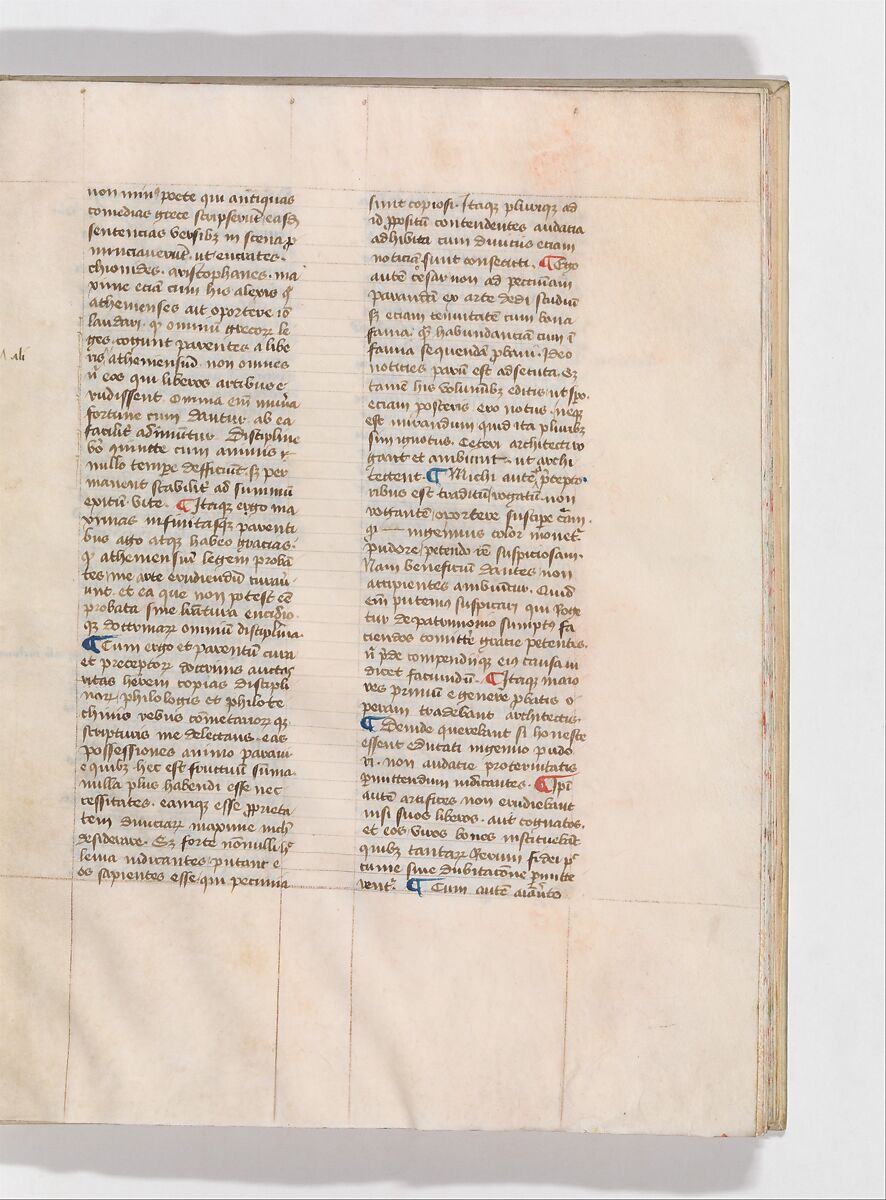 ali
non min⁹ poete qui antiquas
comedias grece scripserūt easd̄
sentencias versibz in scena p̄
nunciaverūt. ut eucrates.
chionides. aristophanes. ma
xime eciā cum his alexis q̄
athenienses ait oportere iō
laudari. qꝫ omniū grecorꝫ le
ges cogunt parentes a libe
ris, atheniensiū non omnes
n̄ eos qui liberos artibus e
rudissent. Omnia em̄ mūa
fortune cum dantur ab ea
facilit̄ adimūtur. Discipline
vō ‸iuncte cum animis
nullo tempe defficiūt. sꝫ per
manent stabilit̄ ad summū
exitū vite. ¶ Itaqꝫ ergo ma
ximas infinitasqꝫ parenti
bus ago atqꝫ habeo gracias.
qꝫ atheniensiū legem proban
tes me arte erudiendū curau
unt. et ea que non potest eē
probata sine lr̄atura encicliō
qꝫ doctrinarꝫ omniū disciplīa
¶ Cum ergo et parentū cura
et preceptorꝫ doctrinis auctas
rētas herem copias discipli
narꝫ. philologis et philote
chinis rebus cōmetariorꝫ qꝫ
scripturis me delectans. eas
possessiones animo paraui.
e quibꝫ hec est fructuū sūma.
nulla plus habendi esse nec
cessitates. eamqꝫ esse p̄prieta
tem diuiciarꝫ maxime nichil
desiderare. Sꝫ forte nōnulli hec
leuia iudicantes putant e
os sapientes esse. qui pecunia
sunt copiosi. Itaqꝫ pleriqꝫ ad
id p̄positū contendentes audacia
adhibita cum diuitiis eciam
noticiā sunt consecuti. ¶ Ego
autē cesar non ad pecuniam
parandā ex arte dedi studiū
sꝫ eciam tenuitatē cum bona
fama. qꝫ habundanciā cum i
famia sequendā p̄baui. Ideo
noticies parū est adsecuta. Sꝫ
tamē his volumibꝫ editis ut spo.
eciam posteris ero notus. neqꝫ
est mirandum quid ita pluribꝫ
sim ignotus. Ceteri architecti ro
gant et ambiunt. ut archi
tectent. ¶ Michi autē p̄cepto
ribus est traditū rogatū. non
rogantē oportere suscipe curam.
qꝫ — ingenuus color mouet͛
pudore petendo rē suspiciosam.
Nam beneficiū dantes non
accipientes ambiūtur. Quid
em̄ putemus suspicari qui roge
tur de patrimonio sumptꝰ fa
ciendos comittē gracie petentis.
n̄ p̄de compendiiqꝫ eiꝰ causa iu
dicet faciundū. ¶ Itaqꝫ maio
res primū e genere p̄batis o
peram tradebant architectis.
¶ Deinde querebant si honeste
essent educati ingenuo pudo
ri. non audacie proteruitatis
p̄mittendum iudicantes. ¶ Ip̄i
autē artifices non erudiebant
nisi suos liberos. aut cognatos.
et eos viros bonos instituebāt
quibꝫ tantarꝫ rerum fidei pe
cunie sine dubitacione p̄mitte
rent͛. ¶ Cum autē aīaduerto